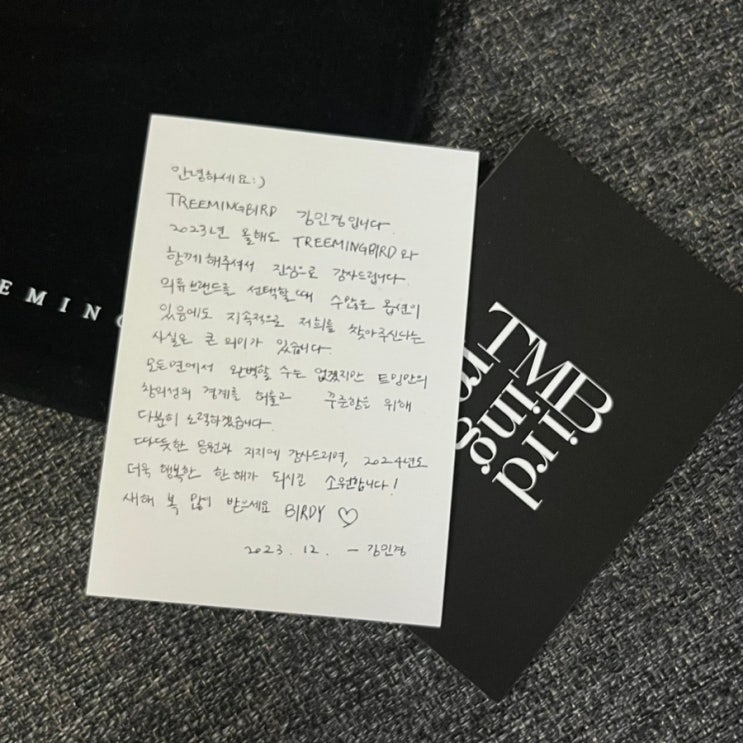 안녕하세요:)
TREEMINGBIRD 김인경입니다.
2023년 올해도 TREEMINGBIRD와
함께 해주셔서 진심으로 감사드립니다.
의류브랜드를 선택할 때 수많은 옵션이
있음에도 지속적으로 저희를 찾아주신다는
사실은 큰 의미가 있습니다.
모든면에서 완벽할 수는 없겠지만 트밍만의
창의성의 경계를 허물고 꾸준함을 위해
다분히 노력하겠습니다.
따뜻한 응원과 지지에 감사드리며, 2024년도
더욱 행복한 한 해가 되시길 소원합니다!
새해 복 많이 받으세요 BIRDY ♡
2023. 12. — 김인경
EMING
TMB
ing
Bird